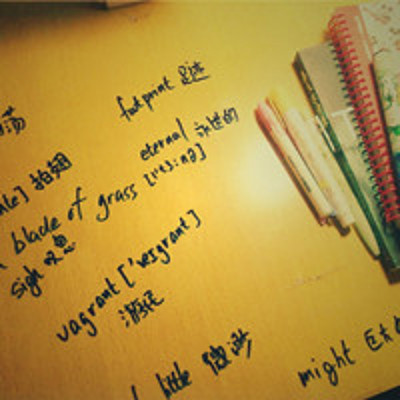 荡
footprint 足迹
eternal 永恒的
[i'tə:nəl]
拍翅
blade of grass
sigh 叹息
vagrant ['veigrənt]
游民
little 微渺
might 巨大